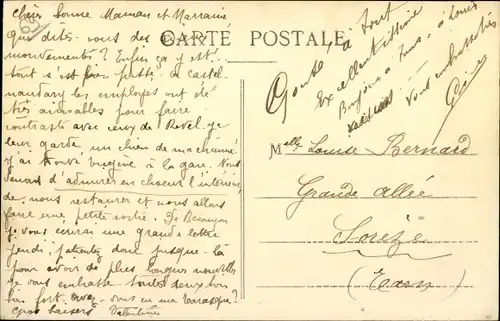 CARTE POSTALE
Chère Bonne Maman et Marraine
que dites-vous des
mouvements? Enfin ça y est!
tout s'est bien passé; a Castel-
naudary les employés ont été
très aimables pour faire
contraste avec ceux de Revel. je
leur garde un chien de ma chienne!
j'ai trouvé à la gare. Nous
venons d'admirer en choeur l'intérieur
de nous restaurer et nous allons
faire une petite sortie. De Besançon
je vous écrirai une grande lettre
jeudi; patientez donc jusque-là
pour avoir de plus longues nouvelles
je vous embrasse toutes deux bien
bien fort. Avez-vous eu ma tarasque?
gros baisers Valentine
à tout
Excellentissime
Bonjour à tous, à Louise
Vous embrasse
Melle Louise Bernard
Grande allée
Sorèze
(Tarn)